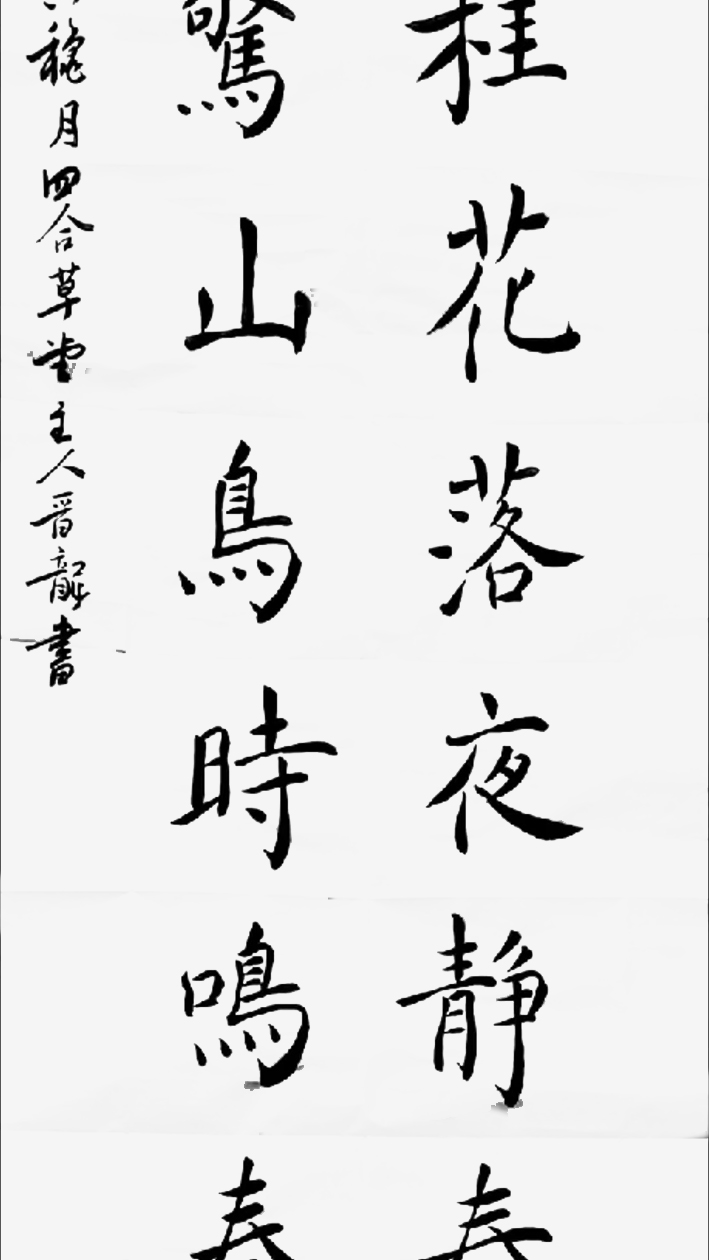 桂花落夜静春
驚山鳥時鳴春
穐月四合草堂主人晋龍書